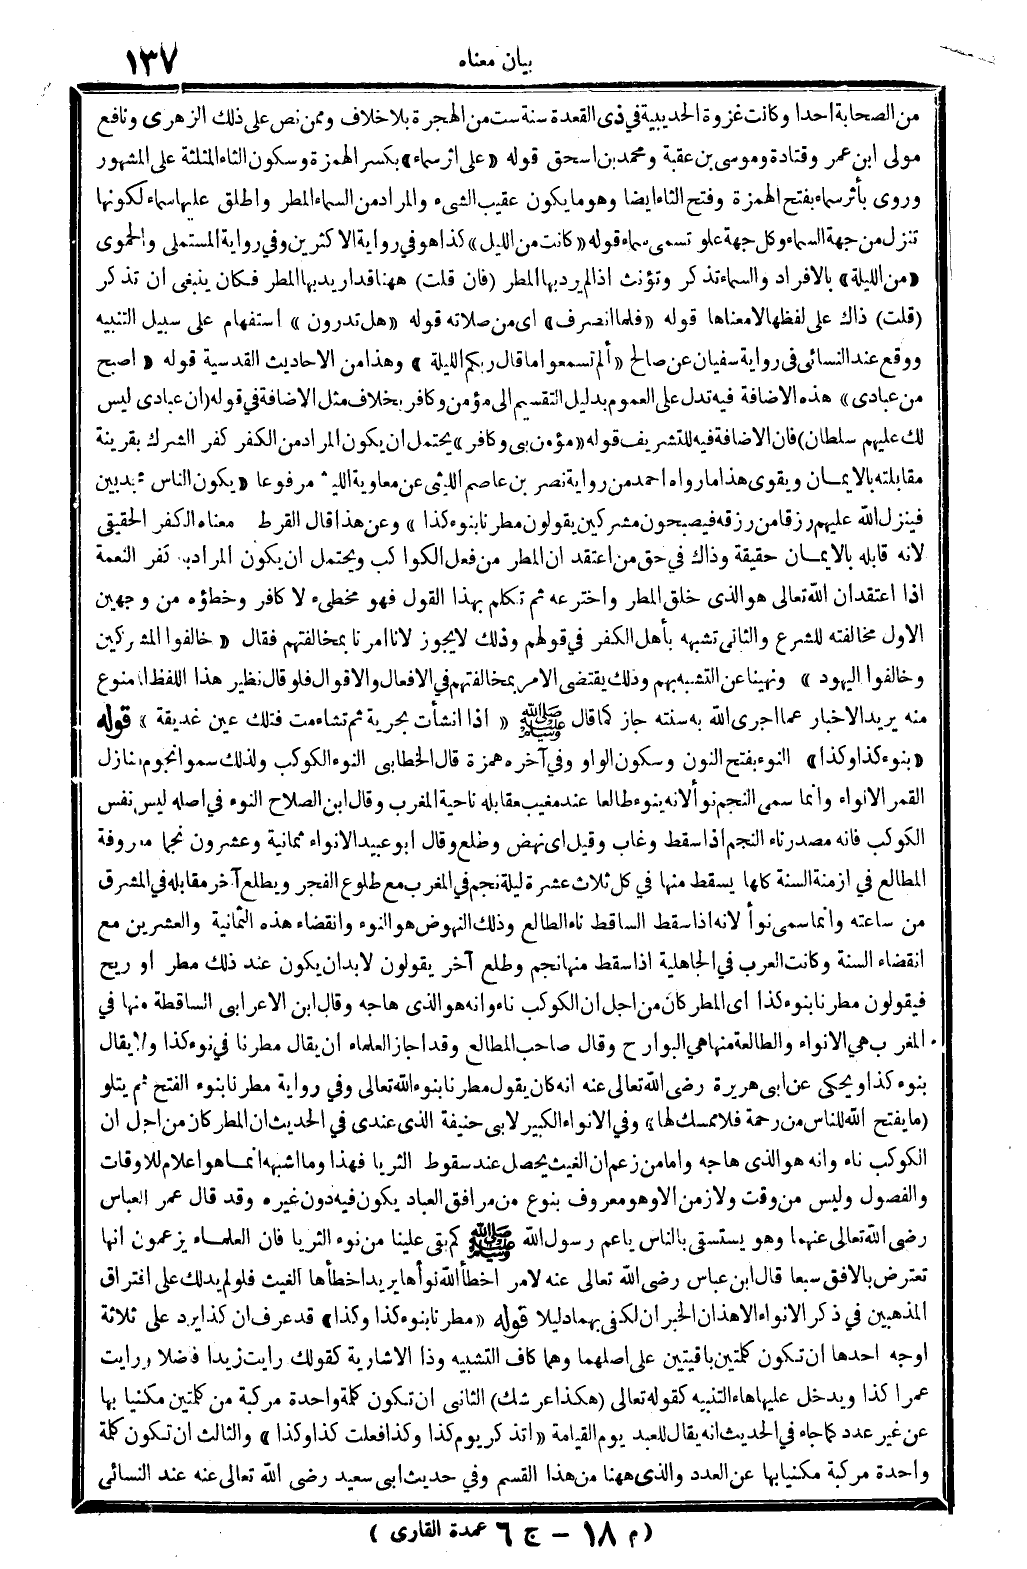 بيان معناه ١٣٧
من الصحابة احدا وكانت غزوة الحديبية في ذى القعدة سنة ست من الهجرة بلا خلاف وممن نص على ذلك الزهرى ونافع
مولى ابن عمر وقتادة وموسى بن عقبة ومحمد بن اسحق قوله «على اثر سماء» بكسر الهمزة وسكون الثاء المثلثة على المشهور
وروى بأثر سماء بفتح الهمزة وفتح الثاء ايضا وهو ما يكون عقيب الشىء والمراد من السماء المطر واطلق عليها سماء لكونها
تنزل من جهة السماء وكل جهة علو تسمى سماء قوله «كانت من الليل» كذا هو في رواية الاكثرين وفي رواية المستملى والحموى
«من الليلة» بالافراد والسماء تذكر وتؤنث اذا لم يرد بها المطر (فان قلت) ههنا قد اريد بها المطر فكان ينبغى ان تذكر
(قلت) ذاك على لفظها لا معناها قوله «فلما انصرف» اى من صلاته قوله «هل تدرون» استفهام على سبيل التنبيه
ووقع عند النسائى في رواية سفيان عن صالح «ألم تسمعوا ما قال ربكم الليلة» وهذا من الاحاديث القدسية قوله «اصبح
من عبادى» هذه الاضافة فيه تدل على العموم بدليل التقسيم الى مؤمن وكافر بخلاف مثل الاضافة في قوله (ان عبادى ليس
لك عليهم سلطان) فان الاضافة فيه للتشريف قوله «مؤمن بى وكافر» يحتمل ان يكون المراد من الكفر كفر الشرك بقرينة
مقابلته بالايمان ويقوى هذا ما رواه احمد من رواية نصر بن عاصم الليثى عن معاوية الليثى مرفوعا «يكون الناس مجدبين
فينزل الله عليهم رزقا من رزقه فيصبحون مشركين يقولون مطرنا بنوء كذا» وعن هذا قال القرط معناه الكفر الحقيقى
لانه قابله بالايمان حقيقة وذاك في حق من اعتقد ان المطر من فعل الكواكب ويحتمل ان يكون المراد به كفر النعمة
اذا اعتقد ان الله تعالى هو الذى خلق المطر واخترعه ثم تكلم بهذا القول فهو مخطىء لا كافر وخطؤه من وجهين
الاول مخالفته للشرع والثانى تشبهه بأهل الكفر في قولهم وذلك لا يجوز لانا امرنا بمخالفتهم فقال «خالفوا المشركين
وخالفوا اليهود» ونهينا عن التشبه بهم وذلك يقتضى الامر بمخالفتهم في الافعال والاقوال فلو قال نظير هذا اللفظ الممنوع
منه يريد الاخبار عما اجرى الله به سنته جاز كما قال ﷺ «اذا انشأت بحرية ثم تشاءمت فتلك عين غديقة» قوله
«بنوء كذا وكذا» النوء بفتح النون وسكون الواو وفي آخره همزة قال الخطابى النوء الكوكب ولذلك سموا نجوم منازل
القمر الانواء وانما سمى النجم نوأ لانه ينوء طالعا عند مغيب مقابله ناحية المغرب وقال ابن الصلاح النوء في اصله ليس نفس
الكوكب فانه مصدر ناء النجم اذا سقط وغاب وقيل اى نهض وطلع وقال ابو عبيد الانواء ثمانية وعشرون نجما معروفة
المطالع في ازمنة السنة كلها يسقط منها في كل ثلاث عشرة ليلة نجم في المغرب مع طلوع الفجر ويطلع آخر مقابله في المشرق
من ساعته وانما سمى نوأ لانه اذا سقط الساقط ناء الطالع وذلك النهوض هو النوء وانقضاء هذه الثمانية والعشرين مع
انقضاء السنة وكانت العرب في الجاهلية اذا سقط منها نجم وطلع آخر يقولون لابد ان يكون عند ذلك مطر او ريح
فيقولون مطرنا بنوء كذا اى المطر كان من اجل ان الكوكب ناء وانه هو الذى هاجه وقال ابن الاعرابى الساقطة منها في
المغرب هى الانواء والطالعة منها هى البوارح وقال صاحب المطالع وقد اجاز العلماء ان يقال مطرنا في نوء كذا ولا يقال
بنوء كذا ويحكى عن ابى هريرة رضى الله تعالى عنه انه كان يقول مطرنا بنوء الله تعالى وفي رواية مطرنا بنوء الفتح ثم يتلو
(ما يفتح الله للناس من رحمة فلا ممسك لها) وفي الانواء الكبير لابى حنيفة الذى عندى في الحديث ان المطر كان من اجل ان
الكوكب ناء وانه هو الذى هاجه واما من زعم ان الغيث يحصل عند سقوط الثريا فهذا وما اشبهه انما هو اعلام للاوقات
والفصول وليس من وقت ولا زمن الا وهو معروف بنوع من مرافق العباد يكون فيه دون غيره وقد قال عمر العباس
رضى الله تعالى عنهما وهو يستسقى بالناس يا عم رسول الله ﷺ كم بقى علينا من نوء الثريا فان العلماء يزعمون انها
تعترض بالافق سبعا قال ابن عباس رضى الله تعالى عنه لامر اخطأ الله نوأها يريد اخطأها الغيث فلو لم يدلك على افتراق
المذهبين في ذكر الانواء الا هذان الخبران لكفى بهما دليلا قوله «مطرنا بنوء كذا وكذا» قد عرف ان كذا يرد على ثلاثة
اوجه احدها ان تكون كلمتين باقيتين على اصلهما وهما كاف التشبيه وذا الاشارية كقولك رايت زيدا فاضلا ورايت
عمرا كذا ويدخل عليها هاء التنبيه كقوله تعالى (هكذا عرشك) الثانى ان تكون كلمة واحدة مركبة من كلمتين مكنيا بها
عن غير عدد كما جاء في الحديث انه يقال للعبد يوم القيامة «اتذكر يوم كذا وكذا فعلت كذا وكذا» والثالث ان تكون كلمة
واحدة مركبة مكنيا بها عن العدد والذى ههنا من هذا القسم وفي حديث ابى سعيد رضى الله تعالى عنه عند النسائى
(م ١٨ – ج ٦ عمدة القارى)